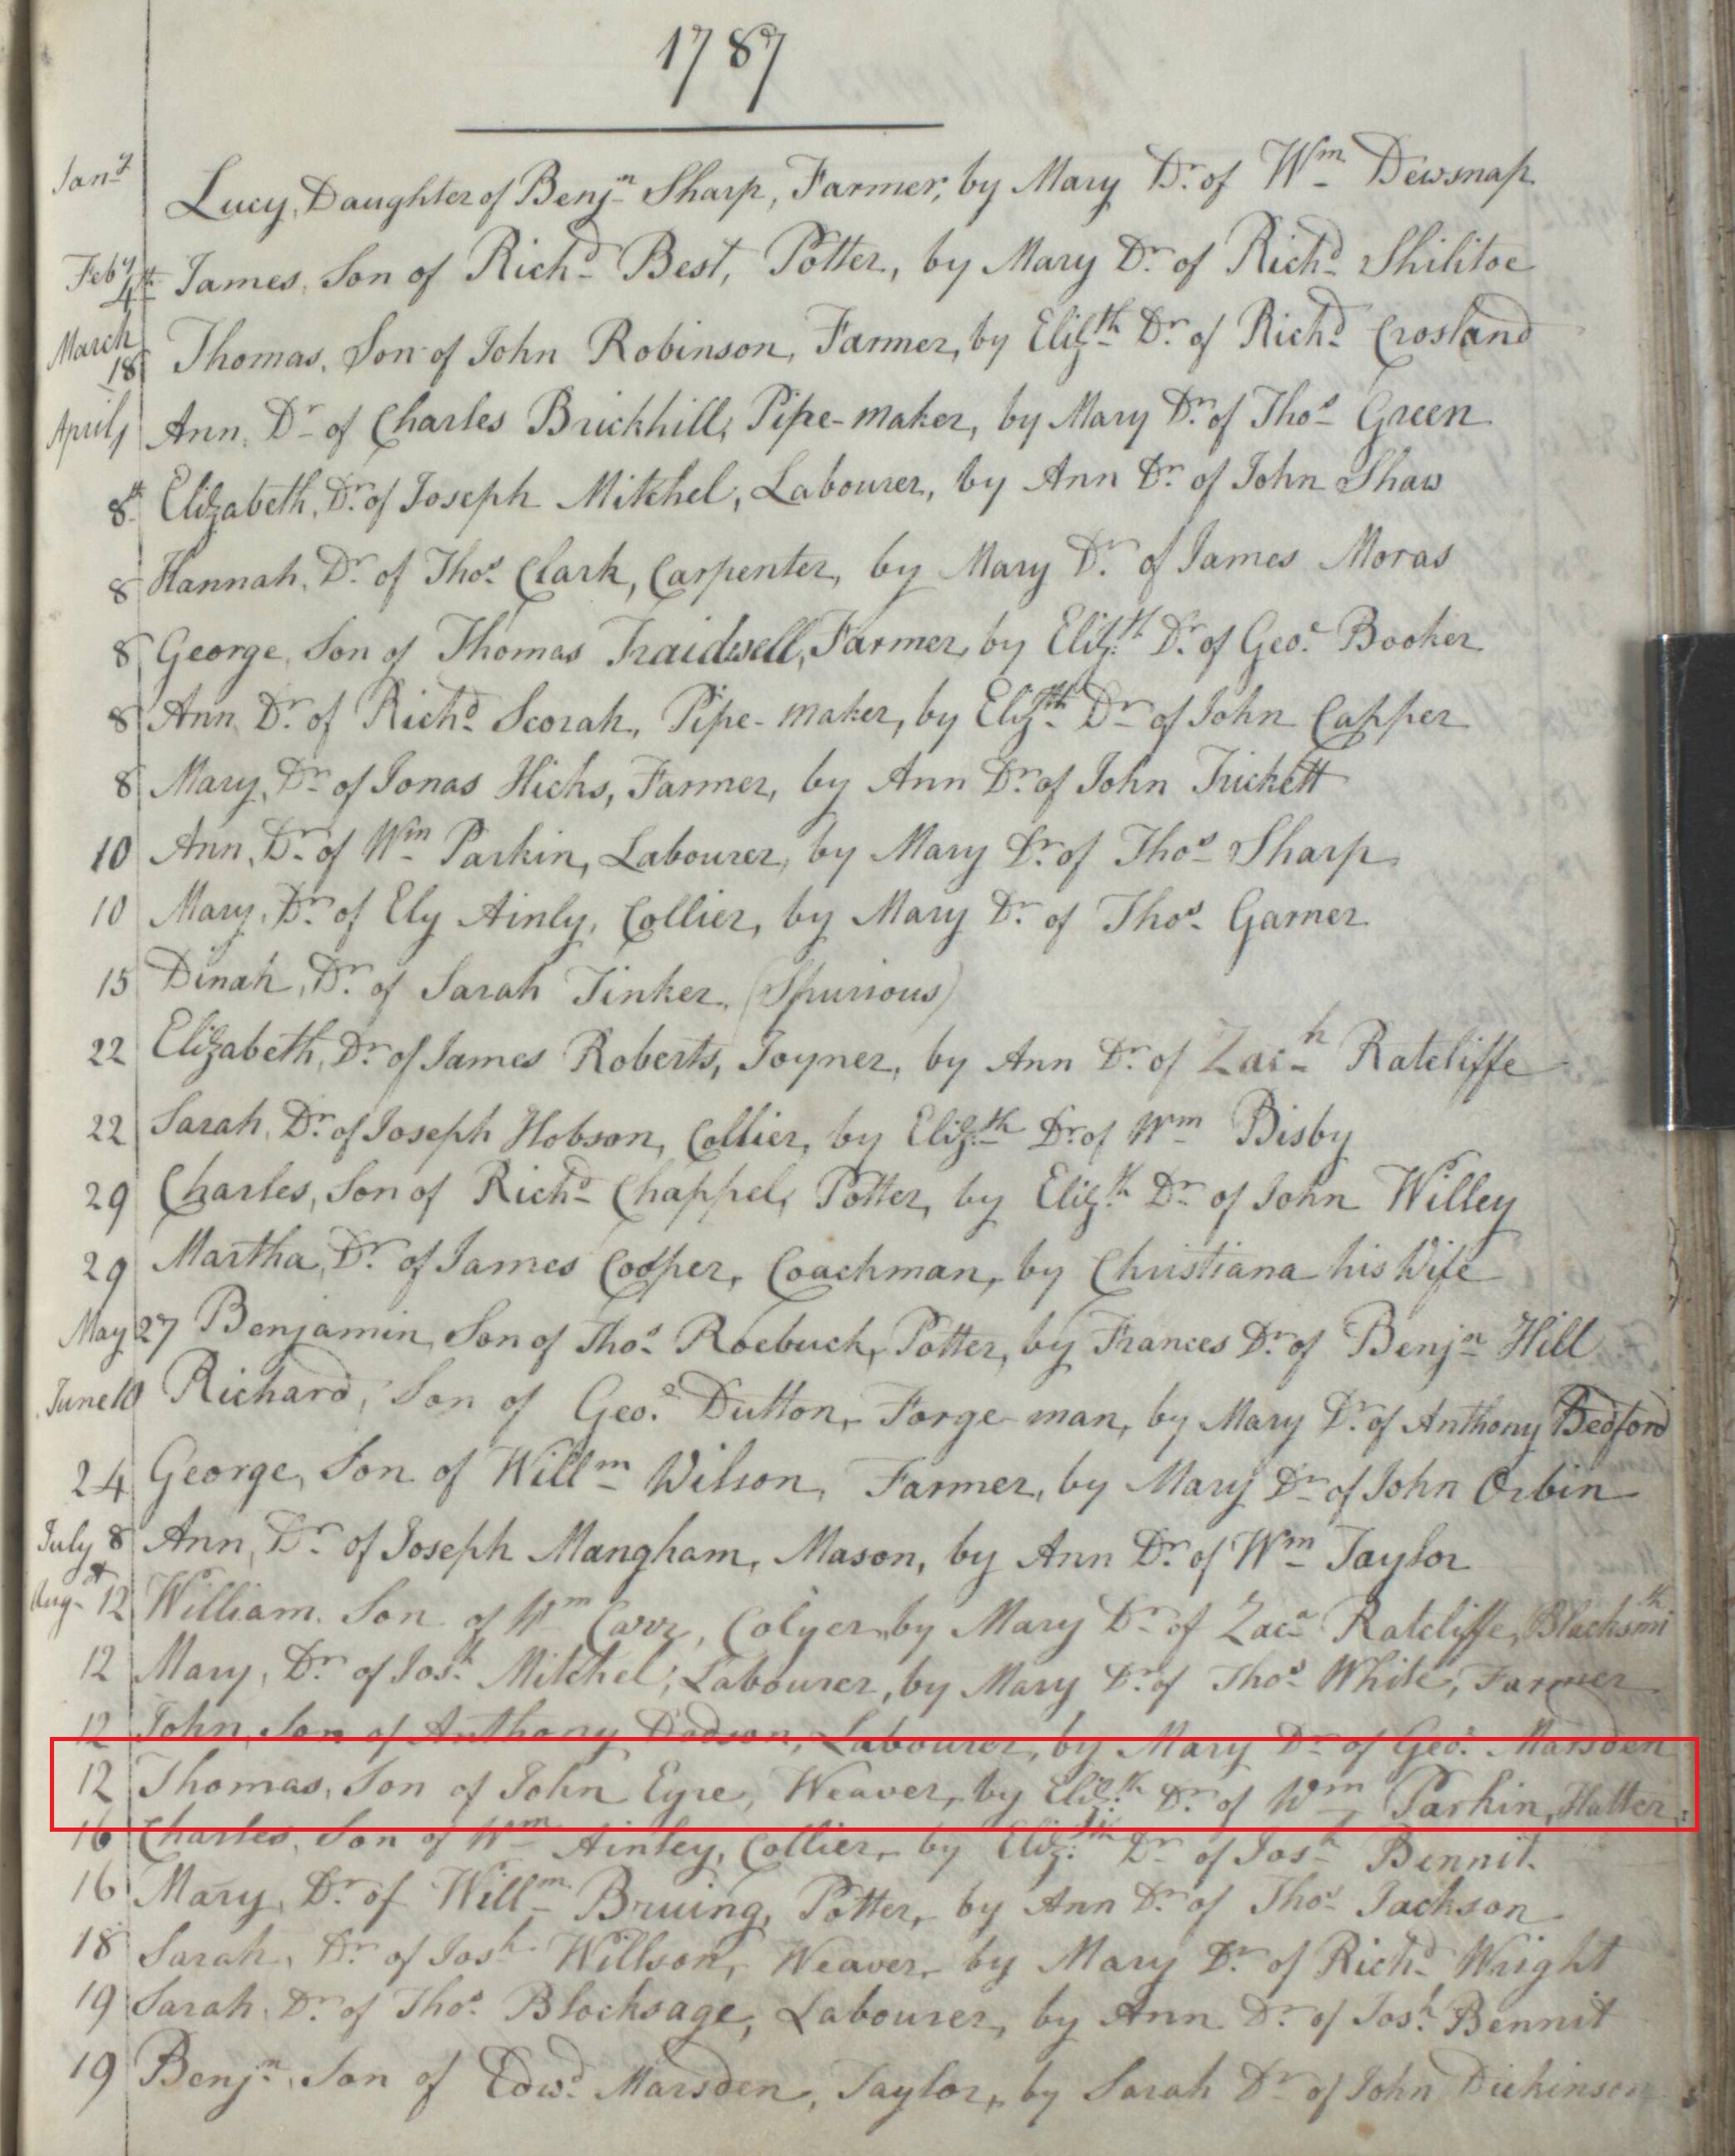 1787
Jany Lucy, Daughter of Benjn Sharp, Farmer, by Mary Dr. of Wm Dewsnap
Feby 4th James, Son of Richd Best, Potter, by Mary Dr. of Richd Shilitoe
March 18 Thomas, Son of John Robinson, Farmer, by Elizth Dr. of Richd Crosland
April 1 Ann, Dr of Charles Brickhill, Pipe-maker, by Mary Dr. of Thos Green
8th Elizabeth, Dr. of Joseph Mitchel, Labourer, by Ann Dr. of John Shaw
8 Hannah, Dr. of Thos. Clark, Carpenter, by Mary Dr. of James Moras
8 George, Son of Thomas Traidwell, Farmer, by Elizth Dr. of Geo. Booker
8 Ann Dr. of Richd Scorah, Pipe-maker, by Elizth Dr of John Capper
8 Mary, Dr of Jonas Hicks, Farmer, by Ann Dr. of John Trickett
10 Ann, Dr. of Wm Parkin, Labourer, by Mary Dr. of Thos Sharp
10 Mary, Dr. of Ely Ainly, Collier, by Mary Dr. of Thos. Garner
15 Dinah, Dr. of Sarah Tinker. (Spurious)
22 Elizabeth, Dr. of James Roberts, Joyner, by Ann Dr. of Zach Ratcliffe
22 Sarah, Dr. of Joseph Hobson, Collier, by Elizth Dr of Wm Bisby
29 Charles, Son of Richd Chappel, Potter, by Elizth Dr. of John Willey
29 Martha, Dr. of James Cooper, Coachman, by Christiana his Wife
May 27 Benjamin, Son of Thos. Roebuck, Potter, by Frances Dr. of Benjn Hill
June 10 Richard, Son of Geo. Dutton, Forge-man, by Mary Dr. of Anthony Bedford
24 George, Son of Willm Wilson, Farmer, by Mary Dr of John Orbin
July 8 Ann, Dr. of Joseph Mangham, Mason, by Ann Dr. of Wm Taylor
Augst 12 William, Son of Wm Carr, Colyer, by Mary Dr of Zaca Ratcliffe, Blacksmith
12 Mary, Dr. of Josh Mitchel, Labourer, by Mary Dr. of Thos White, Farmer
12 John, Son of Anthony Dodson, Labourer, by Mary Dr of Geo. Marsden
12 Thomas, Son of John Eyre, Weaver, by Elizth Dr. of Wm Parkin, Hatter
16 Charles, Son of Wm Ainley, Collier, by Elizth Dr of Josh Bennit.
16 Mary, Dr. of Willm Bruing, Potter, by Ann Dr. of Thos Jackson
18 Sarah, Dr. of Josh Willson, Weaver, by Mary Dr. of Richd Wright
19 Sarah, Dr. of Thos. Blocksage, Labourer, by Ann Dr. of Josh Bennit
19 Benjn, Son of Edwd Marsden, Taylor, by Sarah Dr of John Dickinson